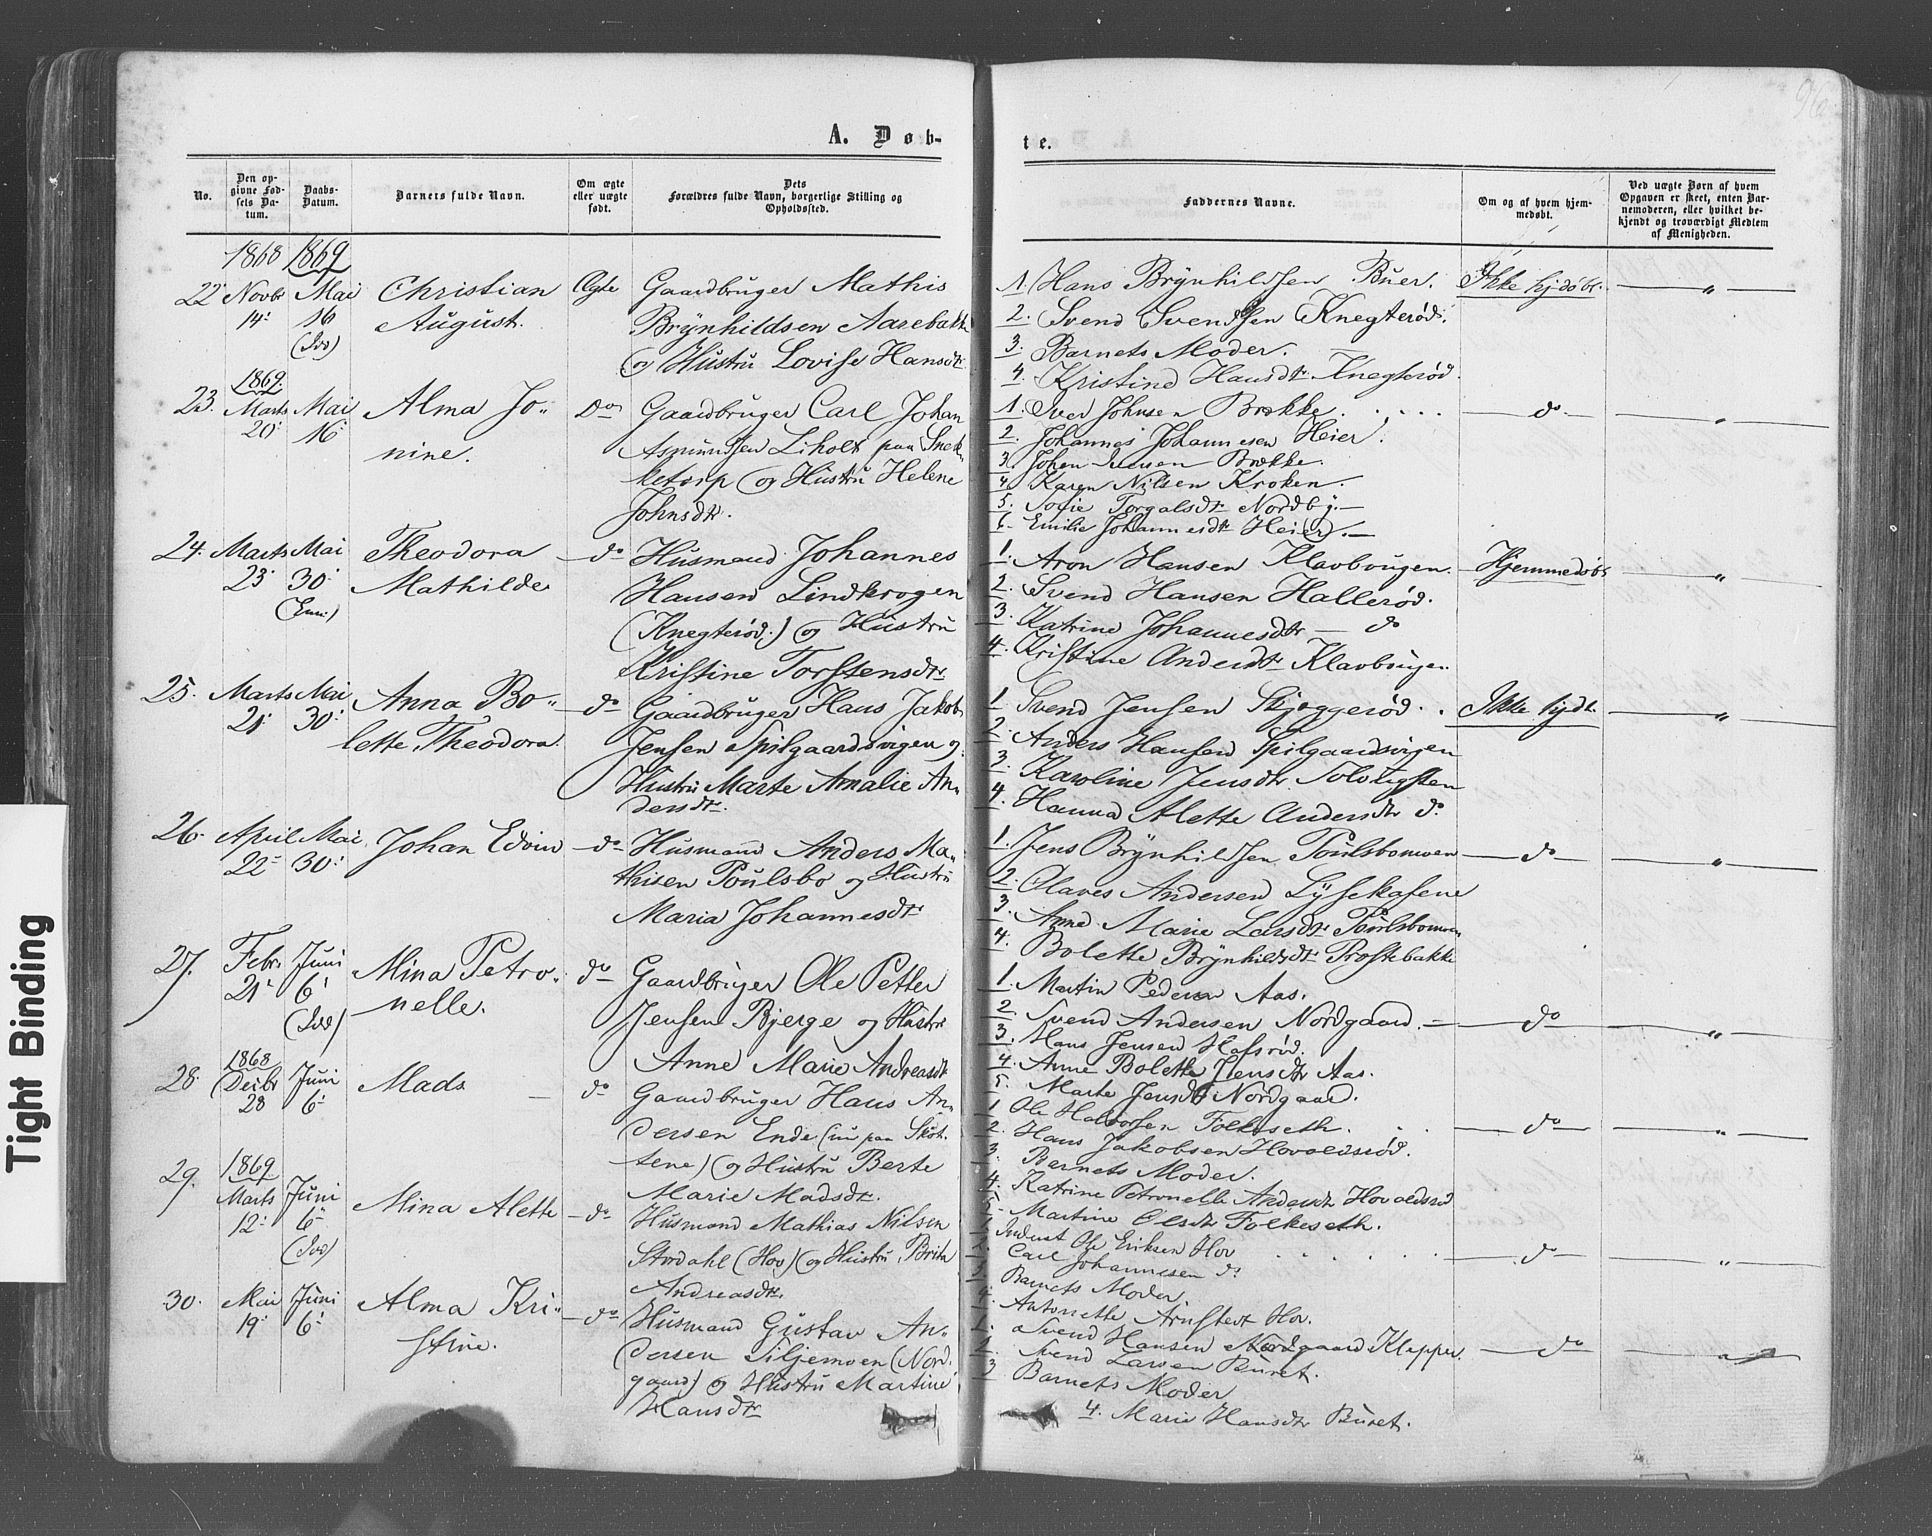 96
A. Døb-
te.
No.
Den op-
givne Fød-
sels Da-
tum.
Daabs-
Datum.
Barnets fulde Navn.
Om ægte
eller uægte
født.
Dets
Forældres fulde Navn, borgerlige Stilling og
Opholdssted.
Faddernes Navne.
Om og af hvem hjem-
medøbt.
Ved uægte Børn af hvem
Opgaven er skeet, enten Bar-
nemoderen, eller hvilket be-
kjendt og troværdigt Medlem
af Menigheden.
1868 1869
22 Novbr 14 Mai 16 (Ide)
Christian
August.
Ægte
Gaardbruger Mathis
Brynhildsen Aarebakk
og Hustru Lovise Hansdtr
1. Hans Brynhildsen Buer.
2. Svend Svendsen Knegterød.
3. Barnets Moder.
4. Kristine Hansdtr Knegterød.
Ikke hjdøbt. "
1869.
23. Marts 20 Mai 16
Alma Jo-
nine.
Do
Gaardbruger Carl Johan
Asmundsen Liholt paa Snek-
ketorp og Hustru Helene
Johnsdtr.
1. Iver Johnsen Brække.
2. Johannes Johannesen Heier.
3. Johan Iversen Brække.
4. Karen Nilsen Kroken.
5. Sofie Torgalsdtr Nordby.
6. Emilie Johannesdtr Heier.
do "
24. Marts 23 Mai 30 (Enn.)
Theodora
Mathilde
do
Husmand Johannes
Hansen Lindkrogen
(Knegterød.) og Hustru
Kristine Torstensdtr
1. Aron Hansen Klavbrugen.
2. Svend Hansen Hallerød.
3. Katrine Johannesdtr do
4. Kristine Andersdtr Klavbrugen.
Hjemmedøbt "
25. Marts 21 Mai 30
Anna Bo-
lette Theodora.
do
Gaardbruger Hans Jakob
Jensen Spilgaardsvigen og
Hustru Marte Amalie An-
dersdtr.
1 Svend Jensen Skjeggerød.
2. Anders Hansen Spilgaardsvigen
3. Karoline Jensdtr Solvigsten
4. Hanna Alette Andersdtr do
Ikke hjdt. "
26. April 22 Mai 30
Johan Edvin
do
Husmand Anders Ma-
thisen Poulsbo og Hustru
Maria Johannesdtr
1. Jens Brynhildsen Poulsbomoen
2. Olaves Andersen Lysekafene
3. Anne Marie Larsdtr Poulsbomoen
4. Bolette Brynhildsdtr Prostebakke
do "
27. Febr. 21 Juni 6 (Ide)
Mina Petro-
nelle.
do
Gaardbruger Ole Petter
Jensen Bjerge og Hustru
Anne Marie Andreasdtr
1. Martin Pedersen Aas.
2. Svend Andersen Nordgaard.
3. Hans Jensen Hafsrød.
4. Anne Bolette Jensdtr Aas.
5. Marte Jensdtr Nordgaard.
do "
1868
28. Decbr 28 Juni 6
Mads
do
Gaardbruger Hans An-
dersen Ende (nu paa Skot-
tene) og Hustru Berte
Marie Madsdtr.
1 Ole Halvorsen Folkeseth.
2. Hans Jakobsen Hovoldsrød.
3. Barnets Moder.
4. Katrine Petronelle Andersdtr Hovoldsrød
5 Martine Olsdtr Folkeseth.
do "
1869
29. Marts 12 Juni 6 (Ide)
Mina Alette
do
Husmand Mathias Nilsen
Stordahl (Hov) og Hustru Brita
Andreasdtr.
1. Inderst Ole Eriksen Hov
2. Carl Johannesen do
3 Barnets Moder.
4. Antonette Arnstedt Hov.
do "
30. Mai 19 Juni 6
Alma Kri-
stine.
do
Husmand Gustav An-
dersen Siljemoen (Nord-
gaard) og Hustru Martine
Hansdtr
1. Svend Hansen Nordgaard Klepper.
2. Svend Larsen Buret.
3 Barnets Moder
4. Marie Hansdtr Buret.
do "
Tight Binding